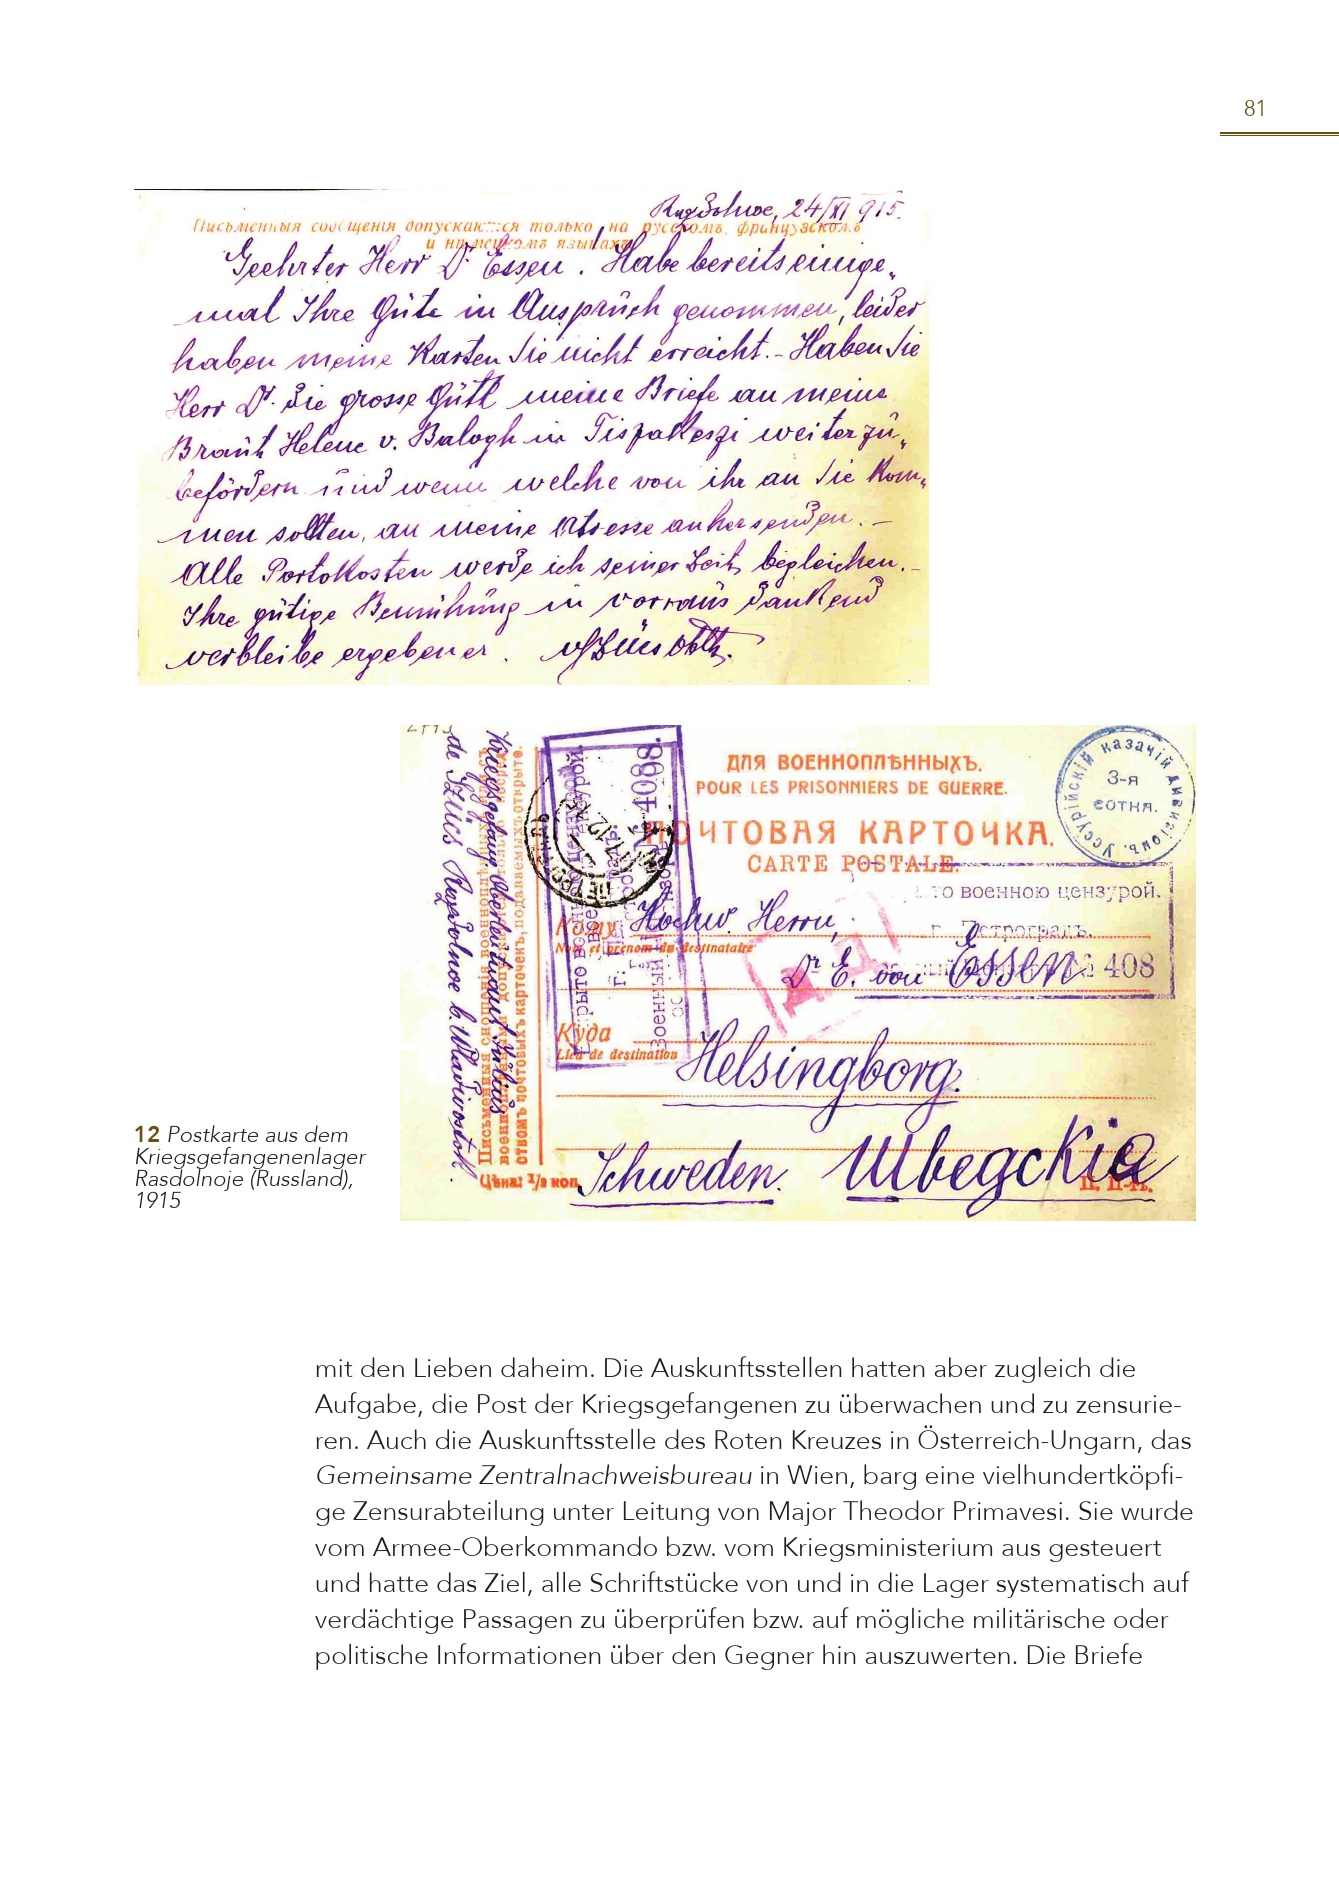 81
Rasdolnoe, 24/XI 915.
Письменныя сообщенія допускаются только на русскомъ, французскомъ
и нѣмецкомъ языкахъ
Geehrter Herr Dr. Essen! Habe bereits einige-
mal Ihre Güte in Anspruch genommen, leider
haben meine Karten Sie nicht erreicht. – Haben Sie
Herr Dr. die grosse Güte meine Briefe an meine
Braut Helene v. Balogh in weiterzu-
befördern und wenn welche von ihr an Sie kom-
men sollten, an meine Adresse anher senden. –
Alle Portokosten werde ich seiner Zeit begleichen. –
Ihre gütige Bemühung in vorraus dankend
verbleibe ergebener.
ДЛЯ ВОЕННОПЛѢННЫХЪ.
POUR LES PRISONNIERS DE GUERRE.
ПОЧТОВАЯ КАРТОЧКА.
CARTE POSTALE.
Уссурійскій казачій дивизіонъ.
3-я
сотня.
военною цензурой.
г. Петроградъ.
№ 408
Кому
Nom et prénom du destinataire
Hochw. Herrn,
Dr E. von Essen
Куда
Lieu de destination
Helsingborg.
Schweden. Шведскія
Цѣна: 1/2 коп.
Kriegsgefang. Oberleutnant Julius
de Szücs Rasdolnoe b. Wladivostok.
Письменныя сношенія военноплѣнныхъ
ствомъ почтовыхъ карточекъ, подаваемыхъ открыто.
12 Postkarte aus dem
Kriegsgefangenenlager
Rasdolnoje (Russland),
1915
mit den Lieben daheim. Die Auskunftsstellen hatten aber zugleich die
Aufgabe, die Post der Kriegsgefangenen zu überwachen und zu zensurie-
ren. Auch die Auskunftsstelle des Roten Kreuzes in Österreich-Ungarn, das
Gemeinsame Zentralnachweisbureau in Wien, barg eine vielhundertköpfi-
ge Zensurabteilung unter Leitung von Major Theodor Primavesi. Sie wurde
vom Armee-Oberkommando bzw. vom Kriegsministerium aus gesteuert
und hatte das Ziel, alle Schriftstücke von und in die Lager systematisch auf
verdächtige Passagen zu überprüfen bzw. auf mögliche militärische oder
politische Informationen über den Gegner hin auszuwerten. Die Briefe